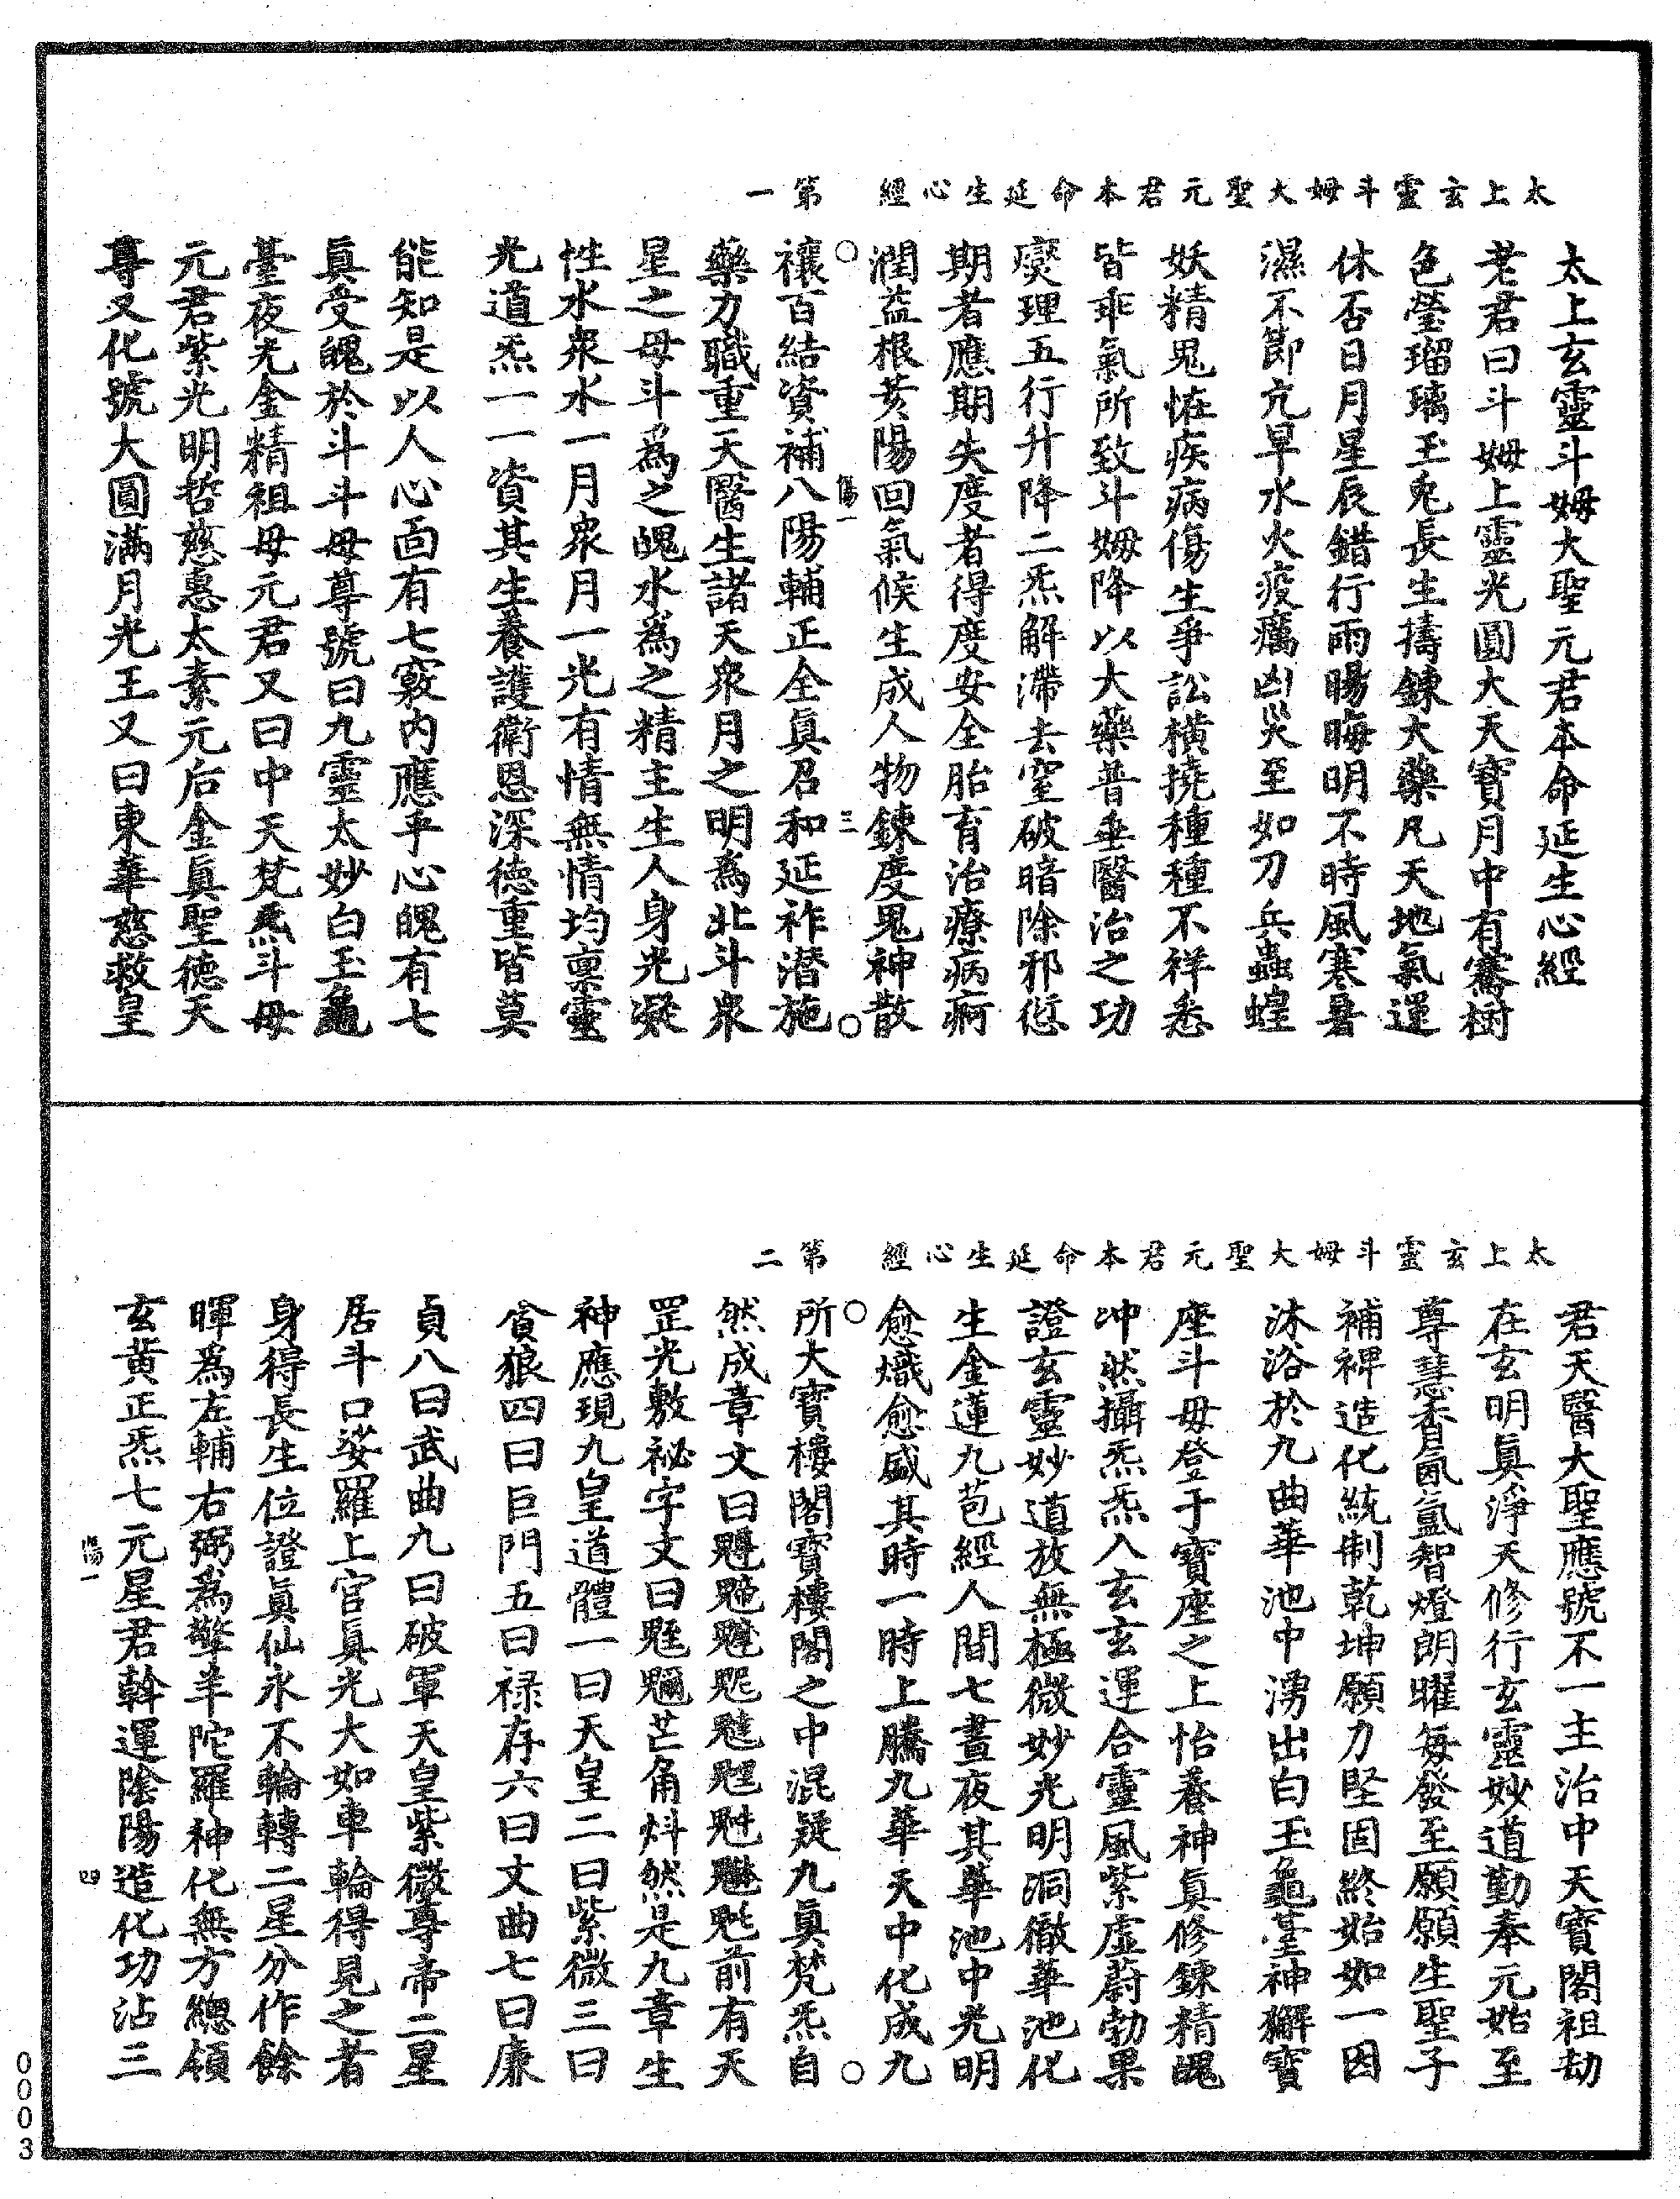 太上玄靈斗姆大聖元君本命延生心經　第一
太上玄靈斗姆大聖元君本命延生心經
老君曰斗姆上靈光圓大天寶月中有騫樹
色瑩瑠璃玉兎長生擣鍊大藥凡天地氣運
休否日月星辰錯行雨暘晦明不時風寒暑
濕不節亢旱水火疫癘凶災至如刀兵蟲蝗
妖精鬼恠疾病傷生爭訟橫撓種種不祥悉
皆乖氣所致斗姆降以大藥普垂醫治之功
燮理五行升降二炁解滯去窒破暗除邪愆
期者應期失度者得度安全胎育治療病痾
潤益根荄陽回氣候生成人物鍊度鬼神散
○傷一　三○
禳百結資補八陽輔正全真召和延祚潛施
藥力職重天醫生諸天衆月之明為北斗衆
星之母斗為之魄水為之精主生人身光凝
性水衆水一月衆月一光有情無情均禀靈
光道炁一一資其生養護衛恩深德重皆莫
能知是以人心面有七竅內應乎心魄有七
真受魄於斗斗母尊號曰九靈太妙白玉龜
臺夜光金精祖母元君又曰中天梵炁斗母
元君紫光明哲慈惠太素元后金真聖德天
尊又化號大圓滿月光王又曰東華慈救皇
太上玄靈斗姆大聖元君本命延生心經　第二
君天醫大聖應號不一主治中天寶閣祖劫
在玄明真淨天修行玄靈妙道勤奉元始至
尊慧香氤氳智燈朗曜每發至願願生聖子
補裨造化統制乾坤願力堅固終始如一因
沐浴於九曲華池中湧出白玉龜臺神獬寶
座斗母登于寶座之上怡養神真修鍊精魄
冲然攝炁炁入玄玄運合靈風紫虛蔚勃果
證玄靈妙道放無極微妙光明洞徹華池化
生金蓮九苞經人間七晝夜其華池中光明
愈熾愈盛其時一時上騰九華天中化成九
○　○
所大寶樓閣寶樓閣之中混凝九真梵炁自
然成章文曰魁𩲃魓䰢魒前有天
罡光敷祕字文曰魓魓芒角炓然是九章生
神應現九皇道體一曰天皇二曰紫微三曰
貪狼四曰巨門五曰祿存六曰文曲七曰廉
貞八曰武曲九曰破軍天皇紫微尊帝二星
居斗口娑羅上官真光大如車輪得見之者
身得長生位證真仙永不輪轉二星分作餘
暉為左輔右弼為擎羊陀羅神化無方總領
玄黃正炁七元星君斡運陰陽造化功沾三
傷一　四
00003